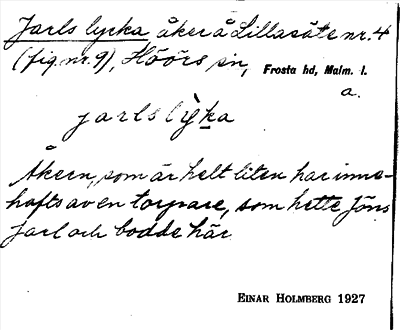 Jarls lycka åker å Lillasäte nr. 4
(fig. nr. 9), Höörs sn, Frosta hd, Malm. l.
a.
jarls lỳka
Åkern, som är helt liten har inne-
hafts av en torpare, som hette Jöns
Jarl och bodde här
EINAR HOLMBERG 1927